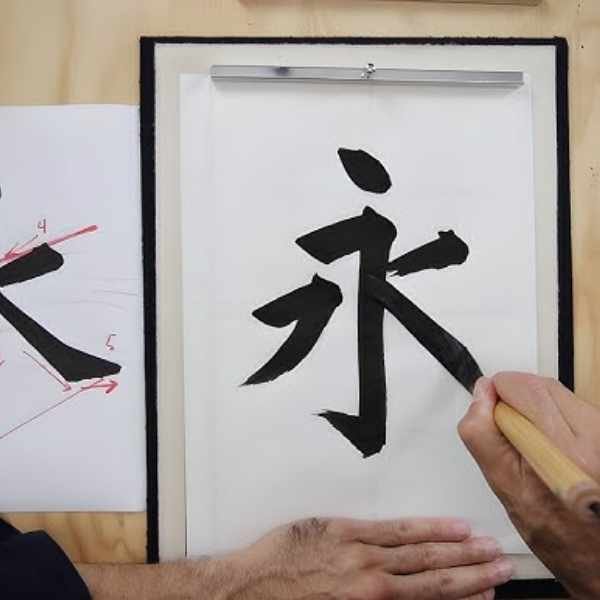 4
5
永